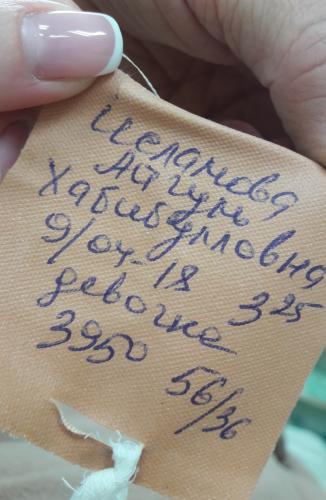 Исламова
Айгунь
Хабибулловна
9/04-18 3 25
девочка
3950
56/36